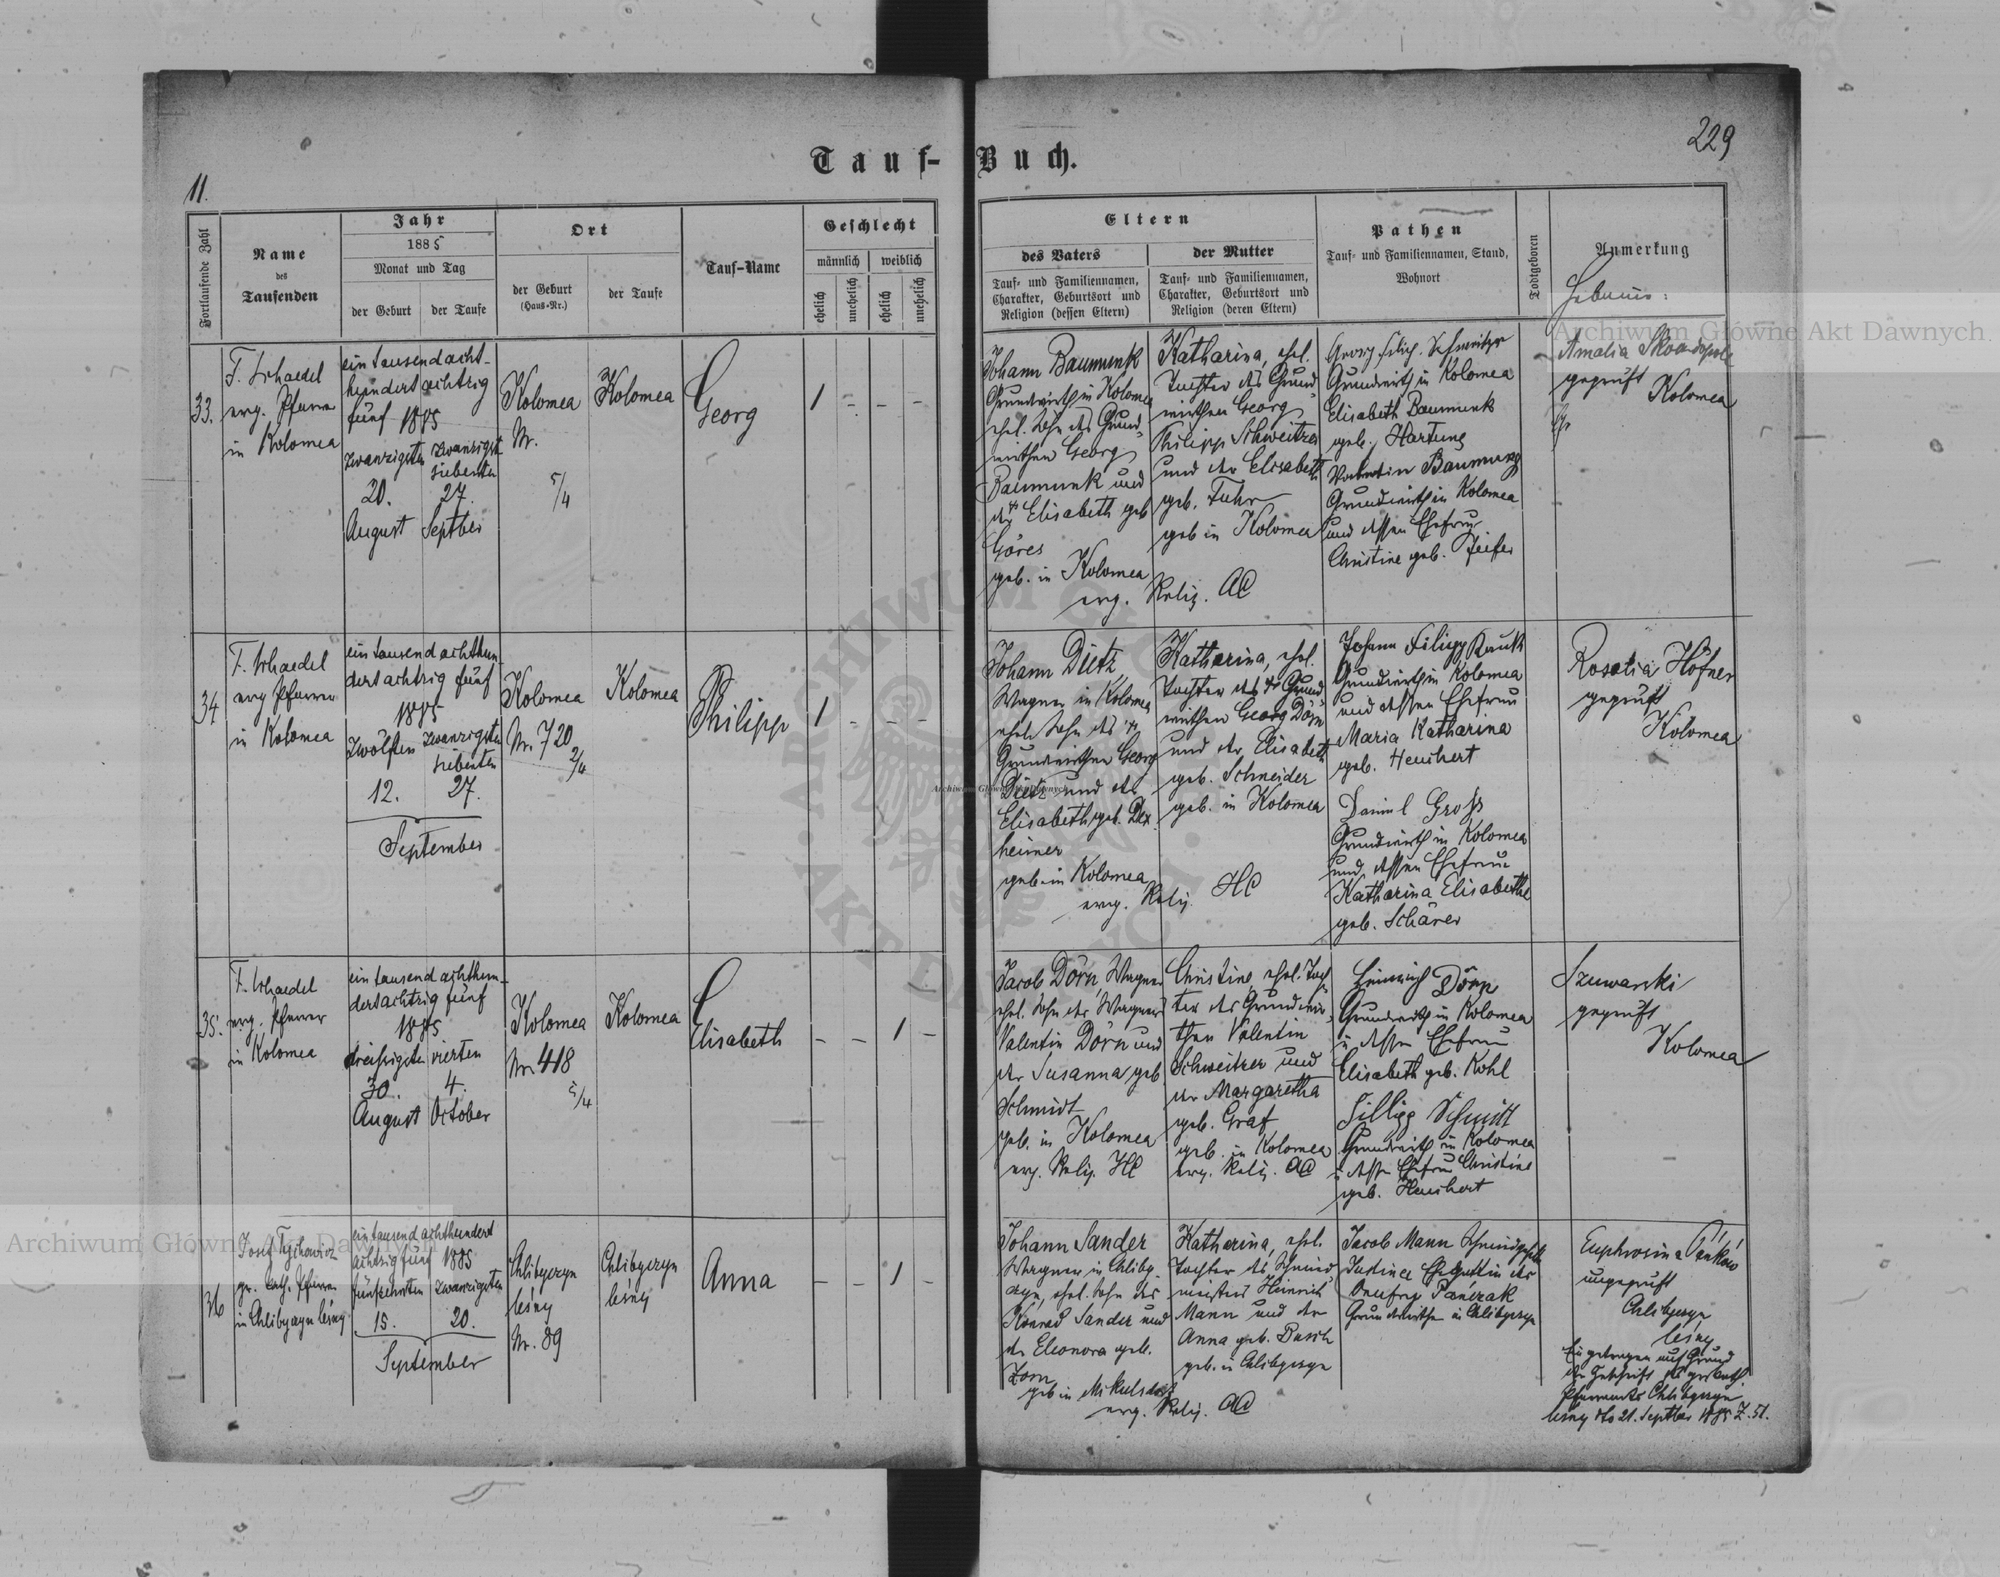 229
Tauf-Buch.
11.
Fortlaufende Zahl
Name
des
Taufenden
Jahr
1885
Monat und Tag
der Geburt
der Taufe
Ort
der Geburt
(Haus-Nr.)
der Taufe
Tauf-Name
Geschlecht
männlich
weiblich
ehelich
unehelich
ehelich
unehelich
Eltern
des Vaters
Tauf- und Familiennamen,
Charakter, Geburtsort und
Religion (dessen Eltern)
der Mutter
Tauf- und Familiennamen,
Charakter, Geburtsort und
Religion (deren Eltern)
Pathen
Tauf- und Familiennamen, Stand,
Wohnort
Todtgeboren
Anmerkung
Hebamme:
33.
evg. Pfarrer
in Kolomea
ein tausend acht-
hundert achtzig
fünf 1885
zwanzigsten
20.
August
zwanzigst
siebenten
27.
Septber
Kolomea
Nr.
5/4
Kolomea
Georg
1 - - -
Johann Baumunk
Grundwirth in Kolomea
ehel. Sohn des Grund-
wirthen Georg
Baumunk und
der Elisabeth geb
Göres
geb. in Kolomea
evg. Relig. AC
Katharina, ehel.
Tochter des Grund-
wirthen Georg
Philipp Schweitzer
und der Elisabeth
geb. Fuhr
geb in Kolomea
Georg Filip. Schweitzer
Grundwirth in Kolomea
Elisabeth Baumunk
geb. Hartung
Valentin Baumung
Grundwirth in Kolomea
und dessen Ehefrau
Christine geb. Pfeifer
Amalia
geprüft
Kolomea
34
evg Pfarrer
in Kolomea
ein tausend achthun-
dert achtzig fünf
1885
zwölften
12.
zwanzigsten
siebenten
27.
September
Kolomea
Nr. 720
2/4
Kolomea
Philipp
1 - - -
Johann Dietz
Wagner in Kolomea
ehel. Sohn des
Grundwirthen Georg
Dietz und der
Elisabeth geb. Dex-
heimer
geb. in Kolomea
evg. Relig. HC
Katharina, ehel.
Tochter des Grund-
wirthen Georg Dörn
und der Elisabeth
geb. Schneider
geb. in Kolomea
Johann Filipp
Grundwirth in Kolomea
und dessen Ehefrau
Maria Katharina
geb. Heuchert
Daniel Groß
Grundwirth in Kolomea
und dessen Ehefrau
Katharina Elisabethe
geb. Schärer
Rosalia Höfner
geprüft
Kolomea
35.
evg. Pfarrer
in Kolomea
ein tausend achthun-
dert achtzig fünf
1885
dreißigsten
30.
August
vierten
4.
October
Kolomea
Nr. 418
5/4
Kolomea
Elisabeth
- - 1 -
Jacob Dörn Wagner
ehel. Sohn des Wagners
Valentin Dörn und
der Susanna geb
Schmidt
geb. in Kolomea
evg. Relig. HC
Christine, ehel. Toch-
ter des Grundwir-
then Valentin
Schweitzer und
der Margaretha
geb. Graf
geb. in Kolomea
evg. Relig. AC
Heinrich Dörn
Grundwirth in Kolomea
u. dessen Ehefrau
Elisabeth geb. Kohl
Fillipp Schmitt
Grundwirth in Kolomea
u. dessen Ehefrau Christine
geb. Heuchert
Szuwarski
geprüft
Kolomea
36
Josef Tychowicz
gr. kath. Pfarrer
in Chlibyczyn leśny
ein tausend achthundert
achtzig fünf 1885
fünfzehnten
15.
zwanzigsten
20.
September
Chlibyczyn
leśny
Nr. 89
Chlibyczyn
leśny
Anna
- - 1 -
Johann Sander
Wagner in Chliby-
czyn, ehel. Sohn des
Konrad Sander und
der Eleonora geb.
Zorn
geb in Mikulsdorf
evg. Relig. AC
Katharina, ehel.
Tochter des Schmied-
meisters Heinrich
Mann und der
Anna geb. Busch
geb. in Chlibyczyn
Jacob Mann
Justine Ehegattin des
Onufry Panczak
Grundwirthe in Chlibyczyn
Euphrosina Pańków
ungeprüft
Chlibyczyn
leśny
Eingetragen auf Grund
der Zuschrift des gr. kath.
Pfarramts Chlibyczyn
leśny dto 21. Septber 1885 Z. 51.
Archiwum Główne Akt Dawnych
Archiwum Główne Akt Dawnych
Archiwum Główne Akt Dawnych
ARCHIWUM GŁÓWNE AKT DAWNYCH